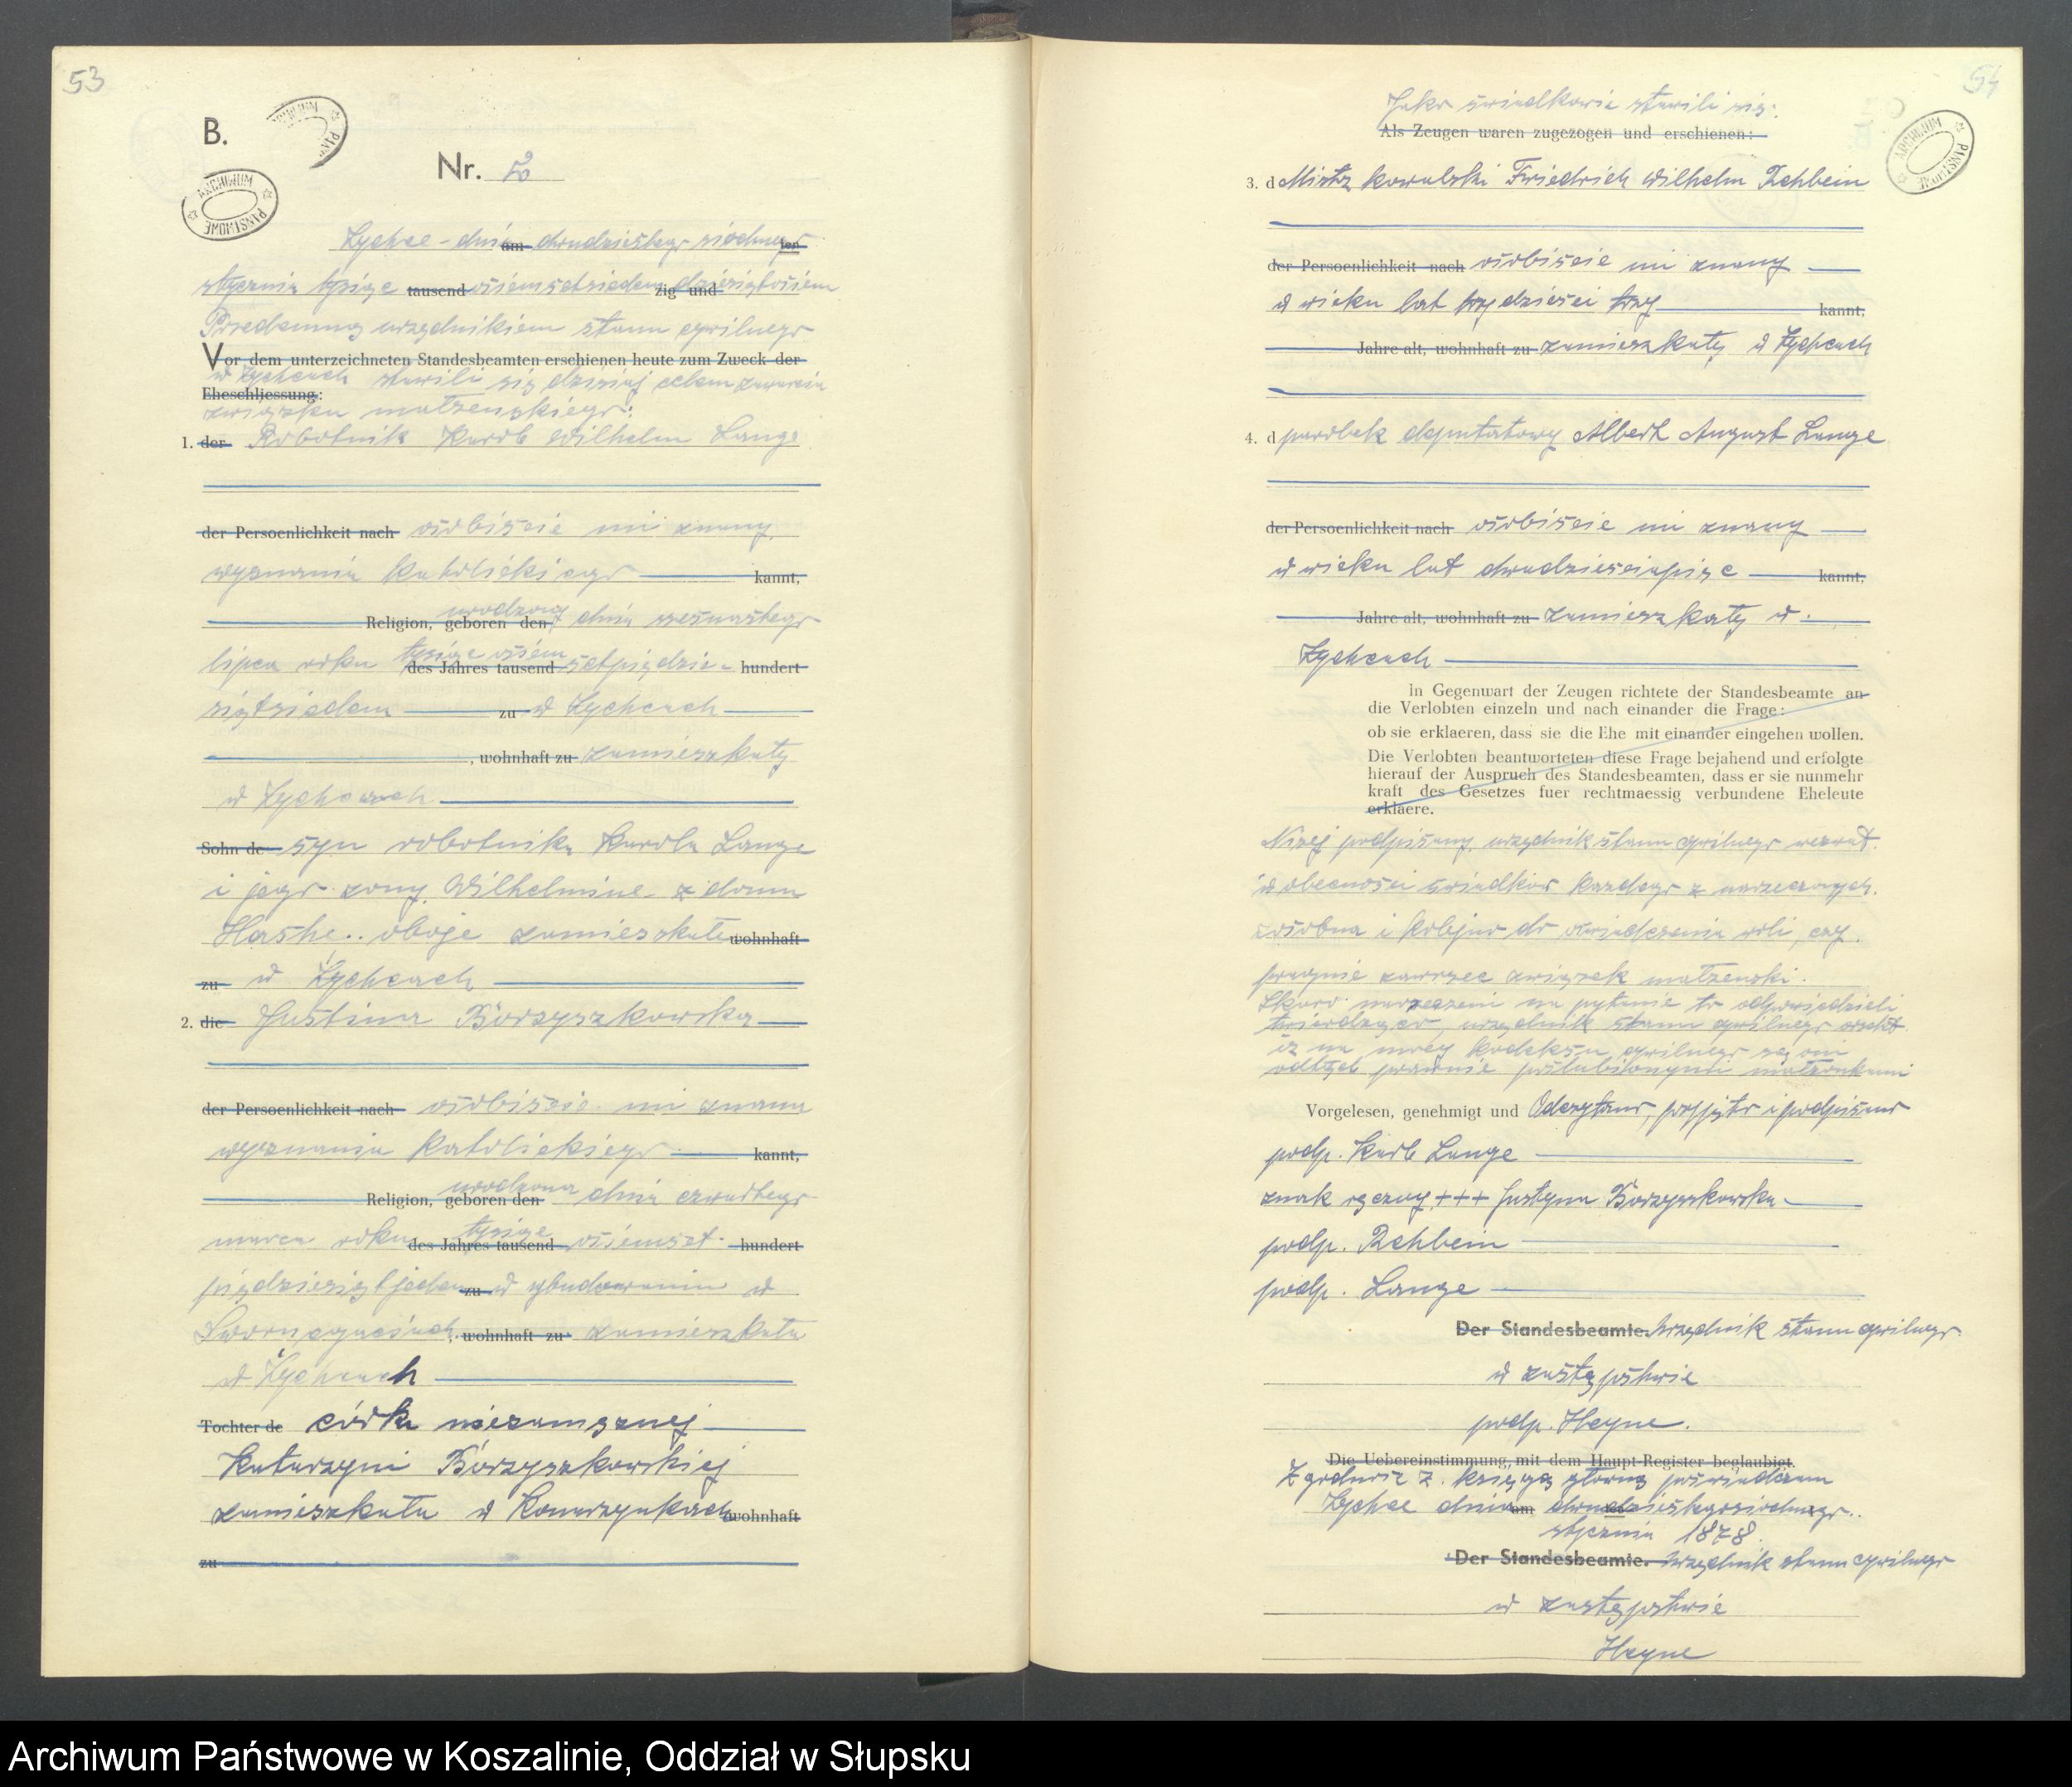 53
B.
ARCHIWUM PAŃSTWOWE
ARCHIWUM PAŃSTWOWE
Nr. 2
Zychce - dnia am dwudziestego siódmego ten
stycznia tysiąc tausend ósiemsetsiedem zig und dziesiątósiem
Przedemną urzędnikiem stanu cywilnego
Vor dem unterzeichneten Standesbeamten erschienen heute zum Zweck der
w Zychcach stawili się dzisiaj celem zawarcia
Eheschliessung:
związku małżenskiego:
1. der Robotnik Karol Wilhelm Lange
der Persoenlichkeit nach osobiscie mi znany
wyznania katolickiego kannt,
urodzony
Religion, geboren den dnia szesnastego
lipca roku tysiąc ósiem
des Jahres tausend setpiędzie- hundert
siątsiedem zu w Zychcach
, wohnhaft zu zamieszkały
w Zychcach
Sohn de syn robotnika Karola Lange
i jego żony Wilhelmine z domu
Hashe.. oboje zamieszkałe wohnhaft
zu w Zychcach
2. die Justina Borzyszkowska
der Persoenlichkeit nach osobiscie mi znana
wyznania katolickiego kannt,
urodzona
Religion, geboren den dnia czwartego
marca roku tysiąc
des Jahres tausend ósiemset hundert
piędziesiątjeden zu w wybudowaniu w
Swornegaciach, wohnhaft zu zamieszkała
w Zychcach
Tochter de córka niezamężnej
Katarzyni Borzyszkowskiej
zamieszkała w Konarzynkach wohnhaft
zu
54
ARCHIWUM PAŃSTWOWE
Jako świadkowie stawili się:
Als Zeugen waren zugezogen und erschienen:
3. d Mistrz kowalski Friedrich Wilhelm Rehbein
der Persoenlichkeit nach osobiscie mi znany
w wieku lat trzydzieści trzy kannt,
Jahre alt, wohnhaft zu zamieszkały w Zychcach
4. d parobek deputatowy Albert August Lange
der Persoenlichkeit nach osobiscie mi znany
w wieku lat dwadzieściapięc kannt,
Jahre alt, wohnhaft zu zamieszkały w
Zychcach
in Gegenwart der Zeugen richtete der Standesbeamte an
die Verlobten einzeln und nach einander die Frage:
ob sie erklaeren, dass sie die Ehe mit einander eingehen wollen.
Die Verlobten beantworteten diese Frage bejahend und erfolgte
hierauf der Auspruch des Standesbeamten, dass er sie nunmehr
kraft des Gesetzes fuer rechtmaessig verbundene Eheleute
erklaere.
Niżej podpisany urzędnik stanu cywilnego wezwał
w obecności świadków każdego z narzeczonych
zosobna i kolejno do oświadczenia woli, czy
pragnie zawrzec związek małżenski.
Skoro narzeczeni na pytanie to odpowiedzieli
twierdząco, urzędnik stanu cywilnego orzekł
iż na mocy kodeksu cywilnego są oni
odtąd prawnie poślubionymi małżonkami
Vorgelesen, genehmigt und Odczytano, przyjęto i podpisano
podp. Karl Lange
znak ręczny +++ Justyna Borzyszkowska
podp. Rehbein
podp. Lange
Der Standesbeamte. Urzędnik stanu cywilnego
w zastępstwie
podp. Heyne.
Die Uebereinstimmung mit dem Haupt-Register beglaubigt.
Zgodność z księgą główną poświadczam
Zychce dnia am dwudziestegosiódmego
stycznia 1878.
Der Standesbeamte. Urzędnik stanu cywilnego
w zastępstwie
Heyne
Archiwum Państwowe w Koszalinie, Oddział w Słupsku